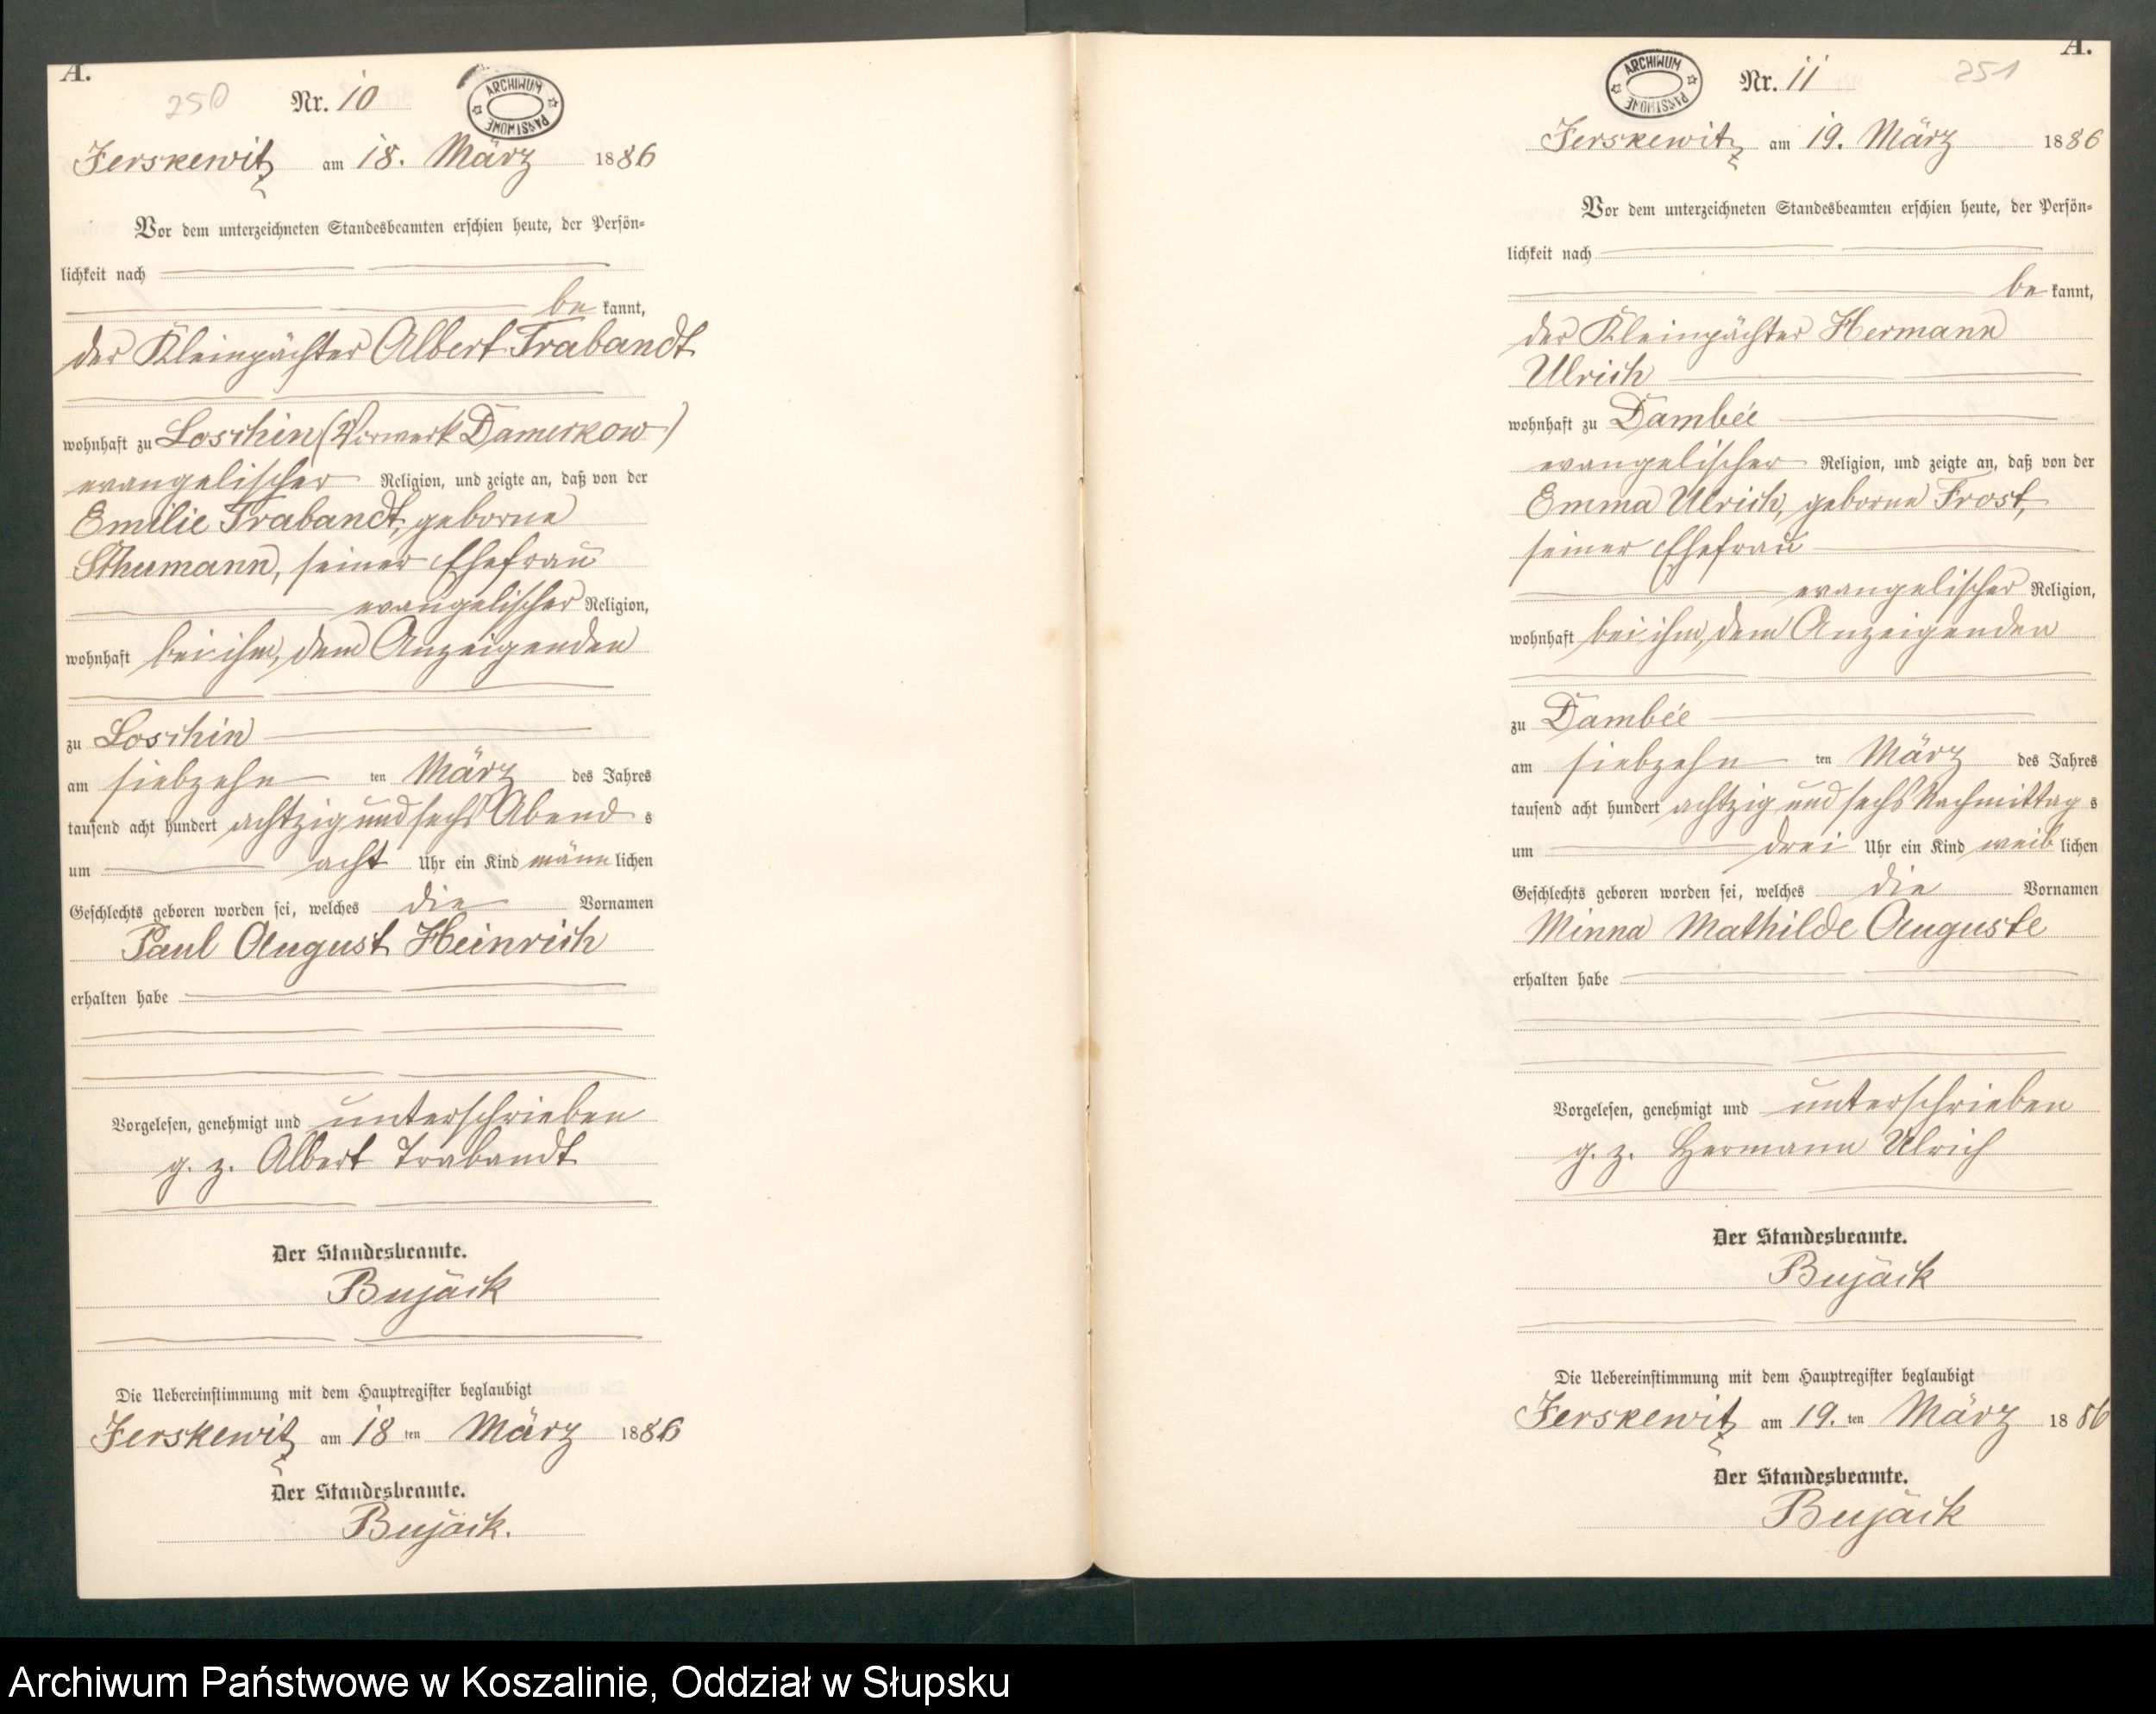 A.
250
Nr. 10
ARCHIWUM PAŃSTWOWE
Jerskewitz am 18. März 1886
Vor dem unterzeichneten Standesbeamten erschien heute, der Persön-
lichkeit nach
be kannt,
der Kleinpächter Albert Trabandt
wohnhaft zu Loschin (Vorwerk Damerkow)
evangelischer Religion, und zeigte an, daß von der
Emilie Trabandt, geborne
Schumann, seiner Ehefrau
evangelischer Religion,
wohnhaft bei ihm, dem Anzeigenden
zu Loschin
am siebzehn ten März des Jahres
tausend acht hundert achtzig und sechs Abend s
um acht Uhr ein Kind männ lichen
Geschlechts geboren worden sei, welches die Vornamen
Paul August Heinrich
erhalten habe
Vorgelesen, genehmigt und unterschrieben
g. z. Albert Trabandt
Der Standesbeamte.
Bujäck
Die Uebereinstimmung mit dem Hauptregister beglaubigt
Jerskewitz am 18 ten März 1886
Der Standesbeamte.
Bujäck.
A.
251
Nr. 11
ARCHIWUM PAŃSTWOWE
Jerskewitz am 19. März 1886
Vor dem unterzeichneten Standesbeamten erschien heute, der Persön-
lichkeit nach
be kannt,
der Kleinpächter Hermann
Ulrich
wohnhaft zu Dambée
evangelischer Religion, und zeigte an, daß von der
Emma Ulrich, geborne Frost,
seiner Ehefrau
evangelischer Religion,
wohnhaft bei ihm, dem Anzeigenden
zu Dambée
am siebzehn ten März des Jahres
tausend acht hundert achtzig und sechs Nachmittag s
um drei Uhr ein Kind weib lichen
Geschlechts geboren worden sei, welches die Vornamen
Minna Mathilde Auguste
erhalten habe
Vorgelesen, genehmigt und unterschrieben
g. z. Hermann Ulrich
Der Standesbeamte.
Bujäck
Die Uebereinstimmung mit dem Hauptregister beglaubigt
Jerskewitz am 19. ten März 1886
Der Standesbeamte.
Bujäck
Archiwum Państwowe w Koszalinie, Oddział w Słupsku